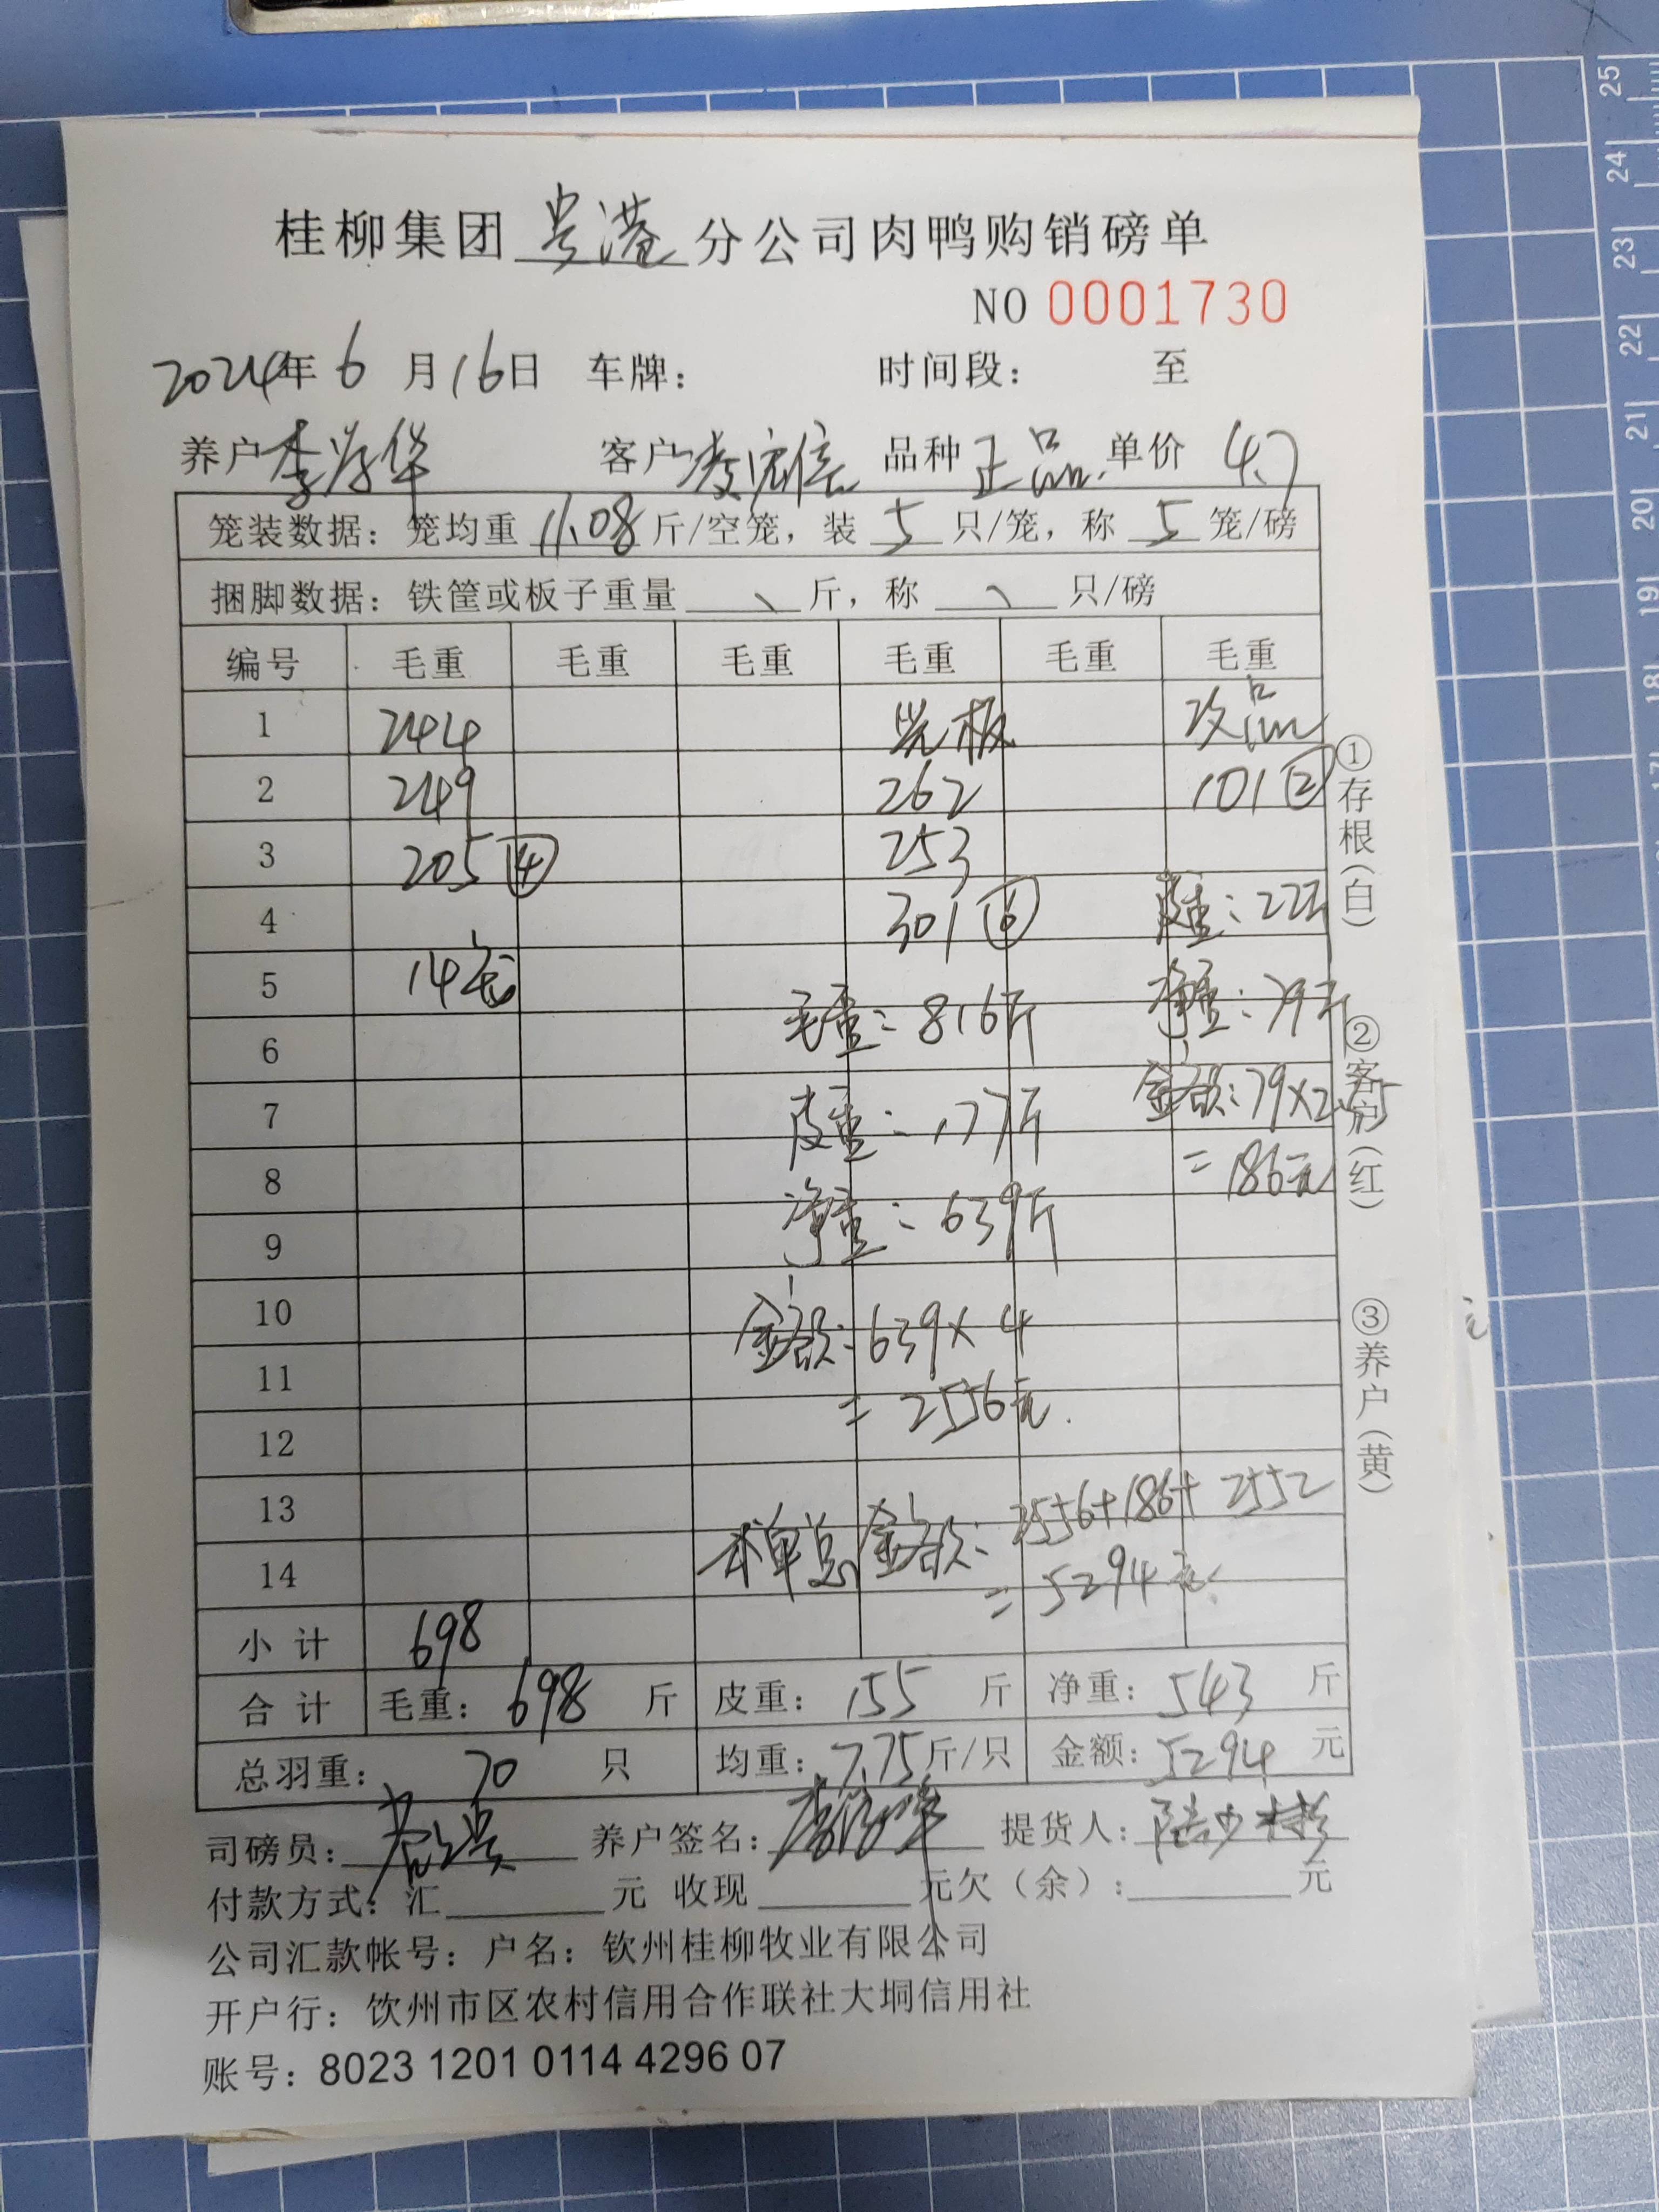 桂柳集团 贵港 分公司肉鸭购销磅单
NO 0001730
2024年6月16日 车牌： 时间段： 至
养户 李 华 客户 凌宏信 品种 正品 单价 4.7
笼装数据：笼均重 11.08 斤/空笼，装 5 只/笼，称 5 笼/磅
捆脚数据：铁筐或板子重量 斤，称 只/磅
编号 毛重 毛重 毛重 毛重 毛重 毛重
1 244 光板 次品
2 249 262 101②
3 205④ 253
4 301⑥ 皮重：22斤
5 14笼 净重：79斤
6 毛重：816斤
7 皮重：177斤 金额：79×2.35
8 =186元
9 净重：639斤
10 金额：639×4
11 =2556元
12
13 本单总金额：2556+186+2552
14 =5294元
小计 698
合计 毛重：698 斤 皮重：155 斤 净重：543 斤
总羽重：70 只 均重：7.75 斤/只 金额：5294 元
司磅员： 养户签名：李 华 提货人：陆少
付款方式：汇 元 收现 元欠（余）： 元
公司汇款帐号：户名：钦州桂柳牧业有限公司
开户行：饮州市区农村信用合作联社大垌信用社
账号：8023 1201 0114 4296 07
①存根（白）
②客户（红）
③养户（黄）
25
24
23
22
21
20
19
18
17